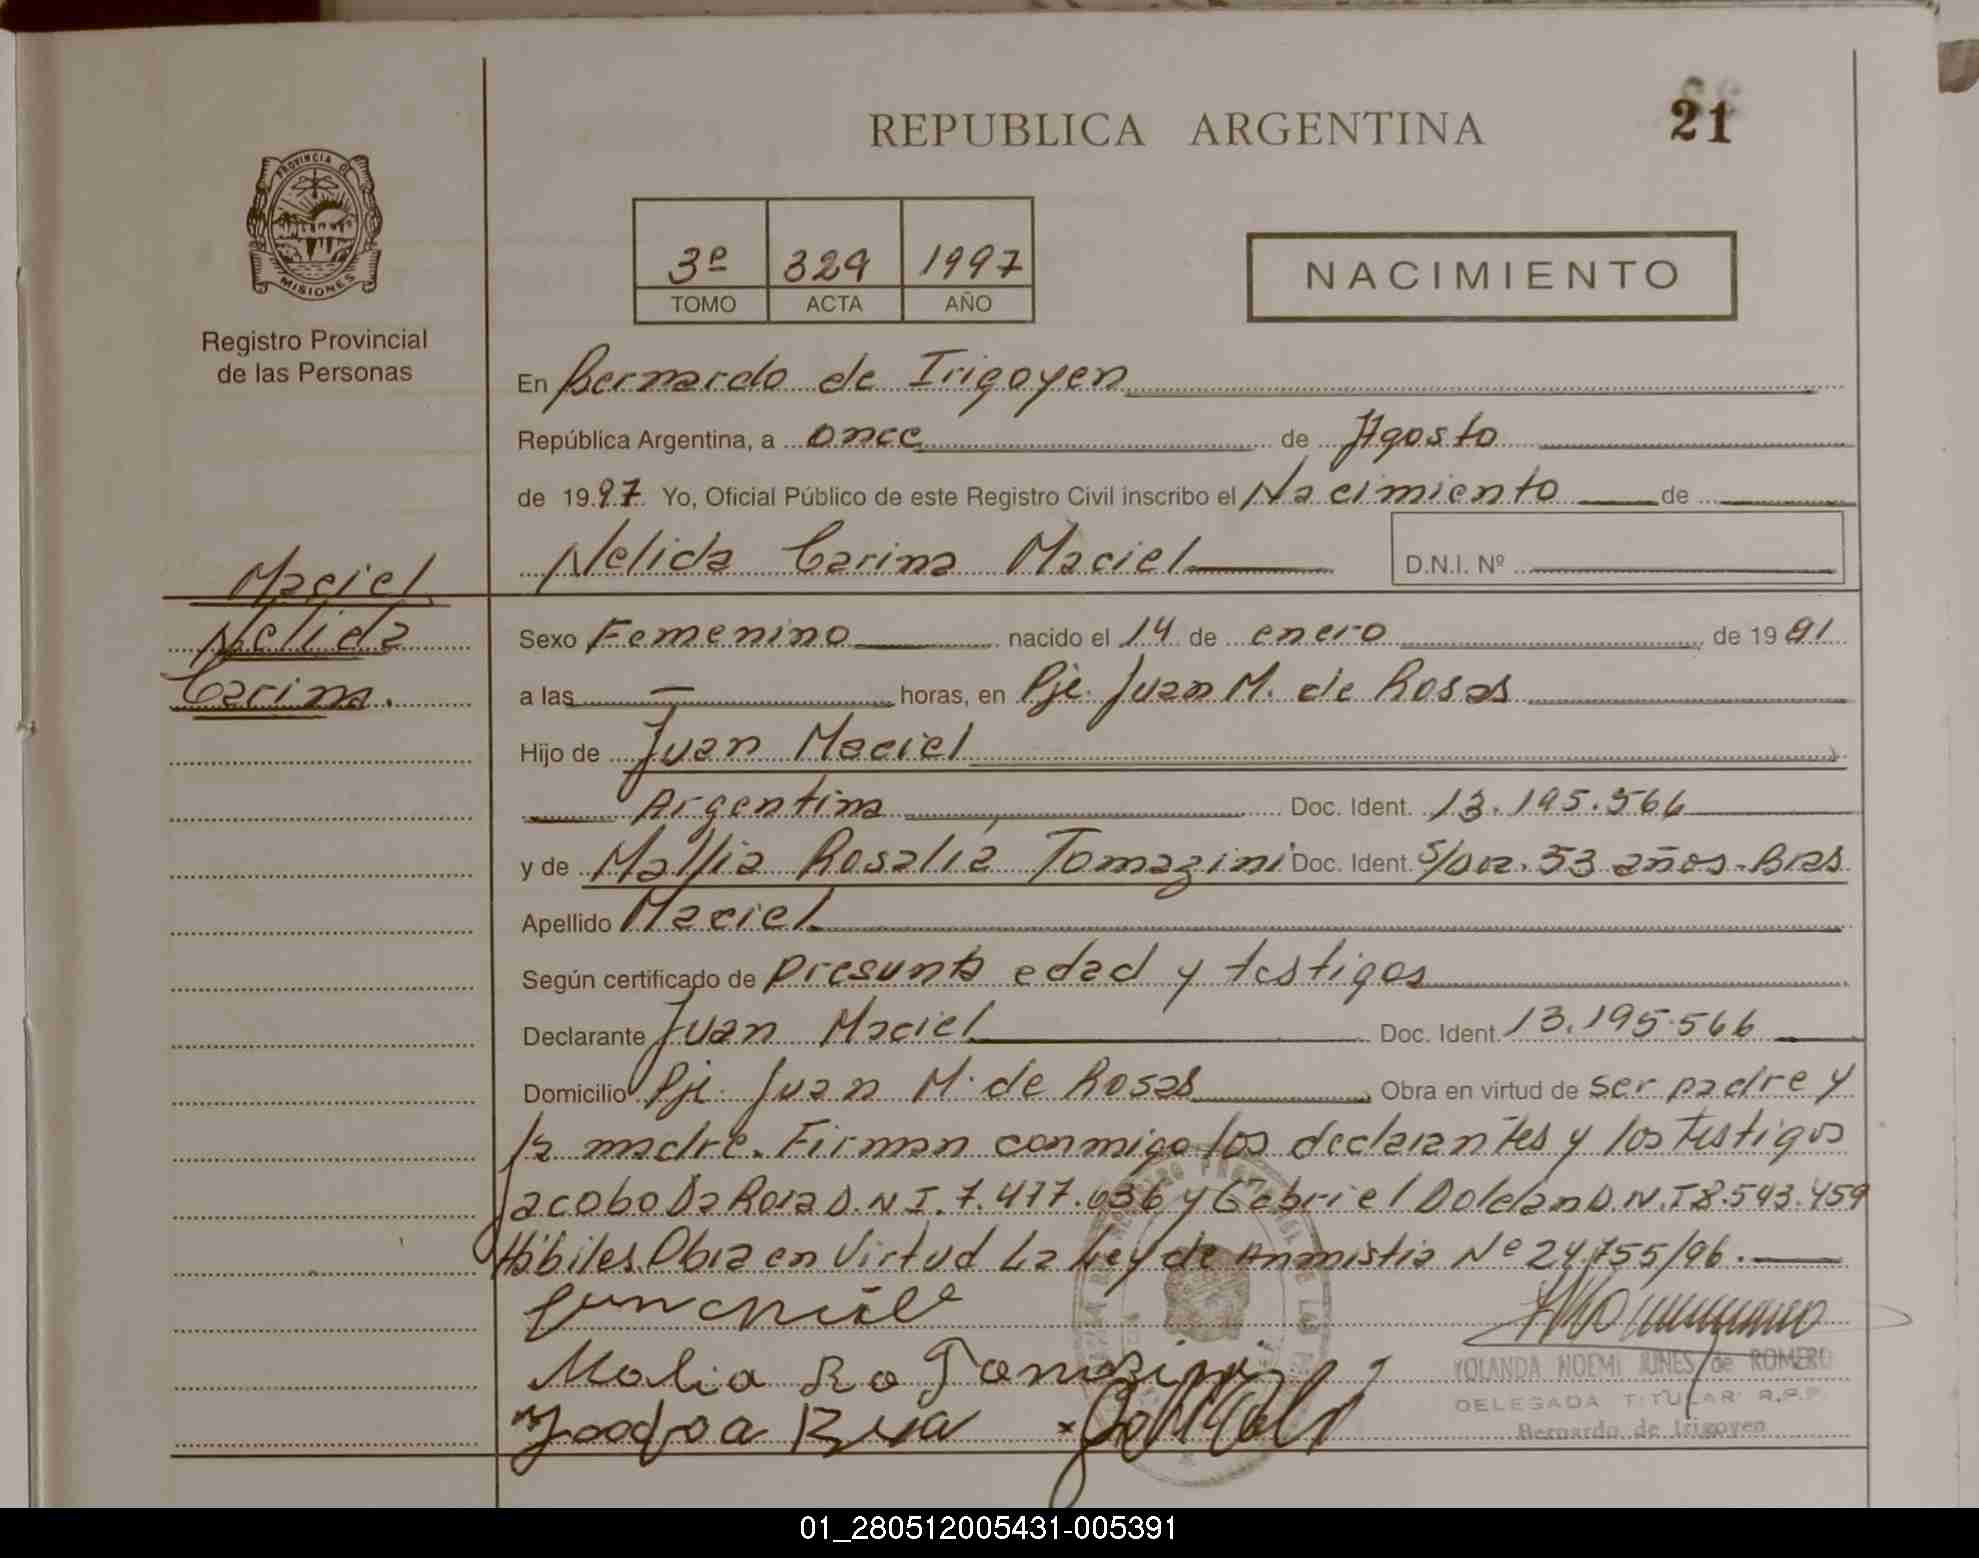 REPUBLICA ARGENTINA
21
PROVINCIA DE
MISIONES
Registro Provincial
de las Personas
3º 329 1997
TOMO ACTA AÑO
NACIMIENTO
En Bernardo de Irigoyen
República Argentina, a once de Agosto
de 1997 Yo, Oficial Público de este Registro Civil inscribo el Nacimiento de
Nelida Carina Maciel D.N.I. Nº
Maciel
Nelida
Carina.
Sexo Femenino nacido el 14 de enero de 1991
a las — horas, en Pje. Juan M. de Rosas
Hijo de Juan Maciel
Argentina Doc. Ident. 13.195.566
y de Mallia Rosalia Tomazini Doc. Ident. S/Doc. 53 años-Bras
Apellido Maciel
Según certificado de presunta edad y testigos
Declarante Juan Maciel Doc. Ident. 13.195.566
Domicilio Pje. Juan M. de Rosas Obra en virtud de ser padre y
la madre. Firman conmigo los declarantes y los testigos
Jacobo Da Rosa D.N.I. 7.477.636 y Gabriel Doldan D.N.I 8.543.459
Hábiles. Obra en Virtud La Ley de Anmistia Nº 24.755/96.
Malia Ro Tomazini
YOLANDA NOEMI JUNES de ROMERO
DELEGADA TITULAR R.P.P.
Bernardo de Irigoyen
01_280512005431-005391